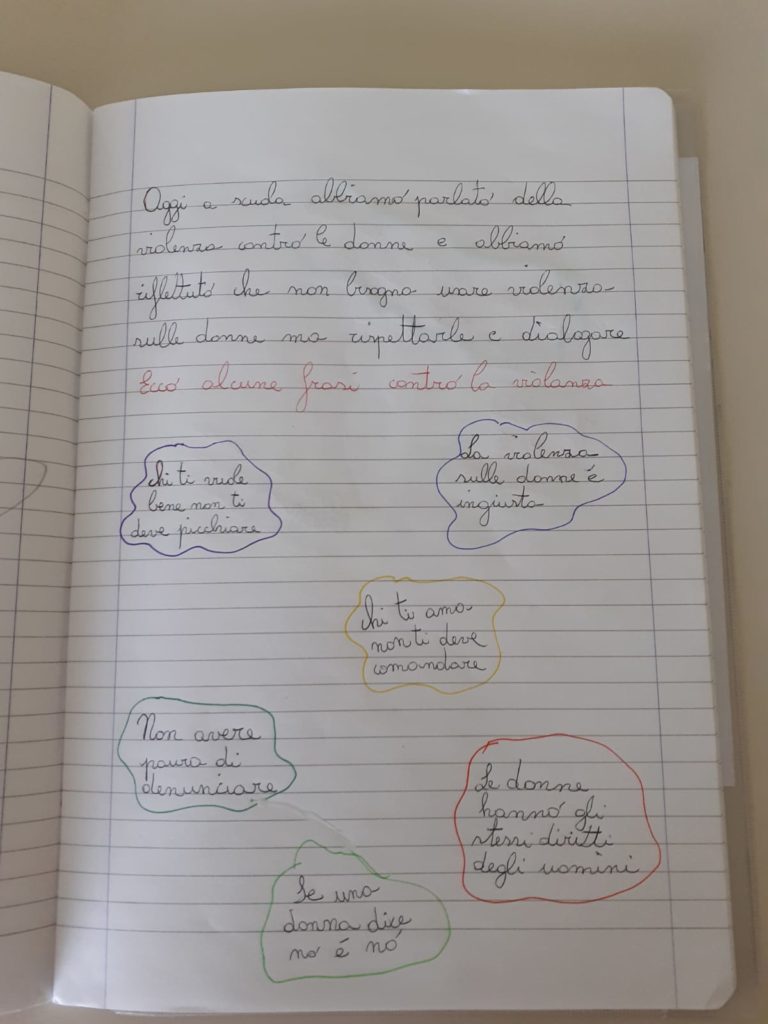 Oggi a scuola abbiamo parlato della
violenza contro le donne e abbiamo
riflettuto che non bisogna usare violenza
sulle donne ma rispettarle e dialogare
Ecco alcune frasi contro la violanza
chi ti vuole
bene non ti
deve picchiare
La violenza
sulle donne é
ingiusta
chi ti ama
non ti deve
comandare
Non avere
paura di
denunciare
Le donne
hanno gli
stessi diritti
degli uomini
Se una
donna dice
no é no